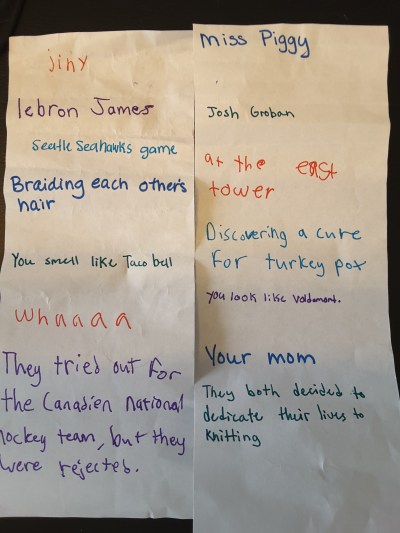 jiny
lebron James
Seatle Seahawks game
Braiding each other's
hair
You smell like Taco bell
whaaaa
They tried out for
the Canadien national
hockey team, but they
were rejected.
Miss Piggy
Josh Groban
at the east
tower
Discovering a cure
for turkey pox
you look like Voldemort.
Your mom
They both decided to
dedicate their lives to
knitting